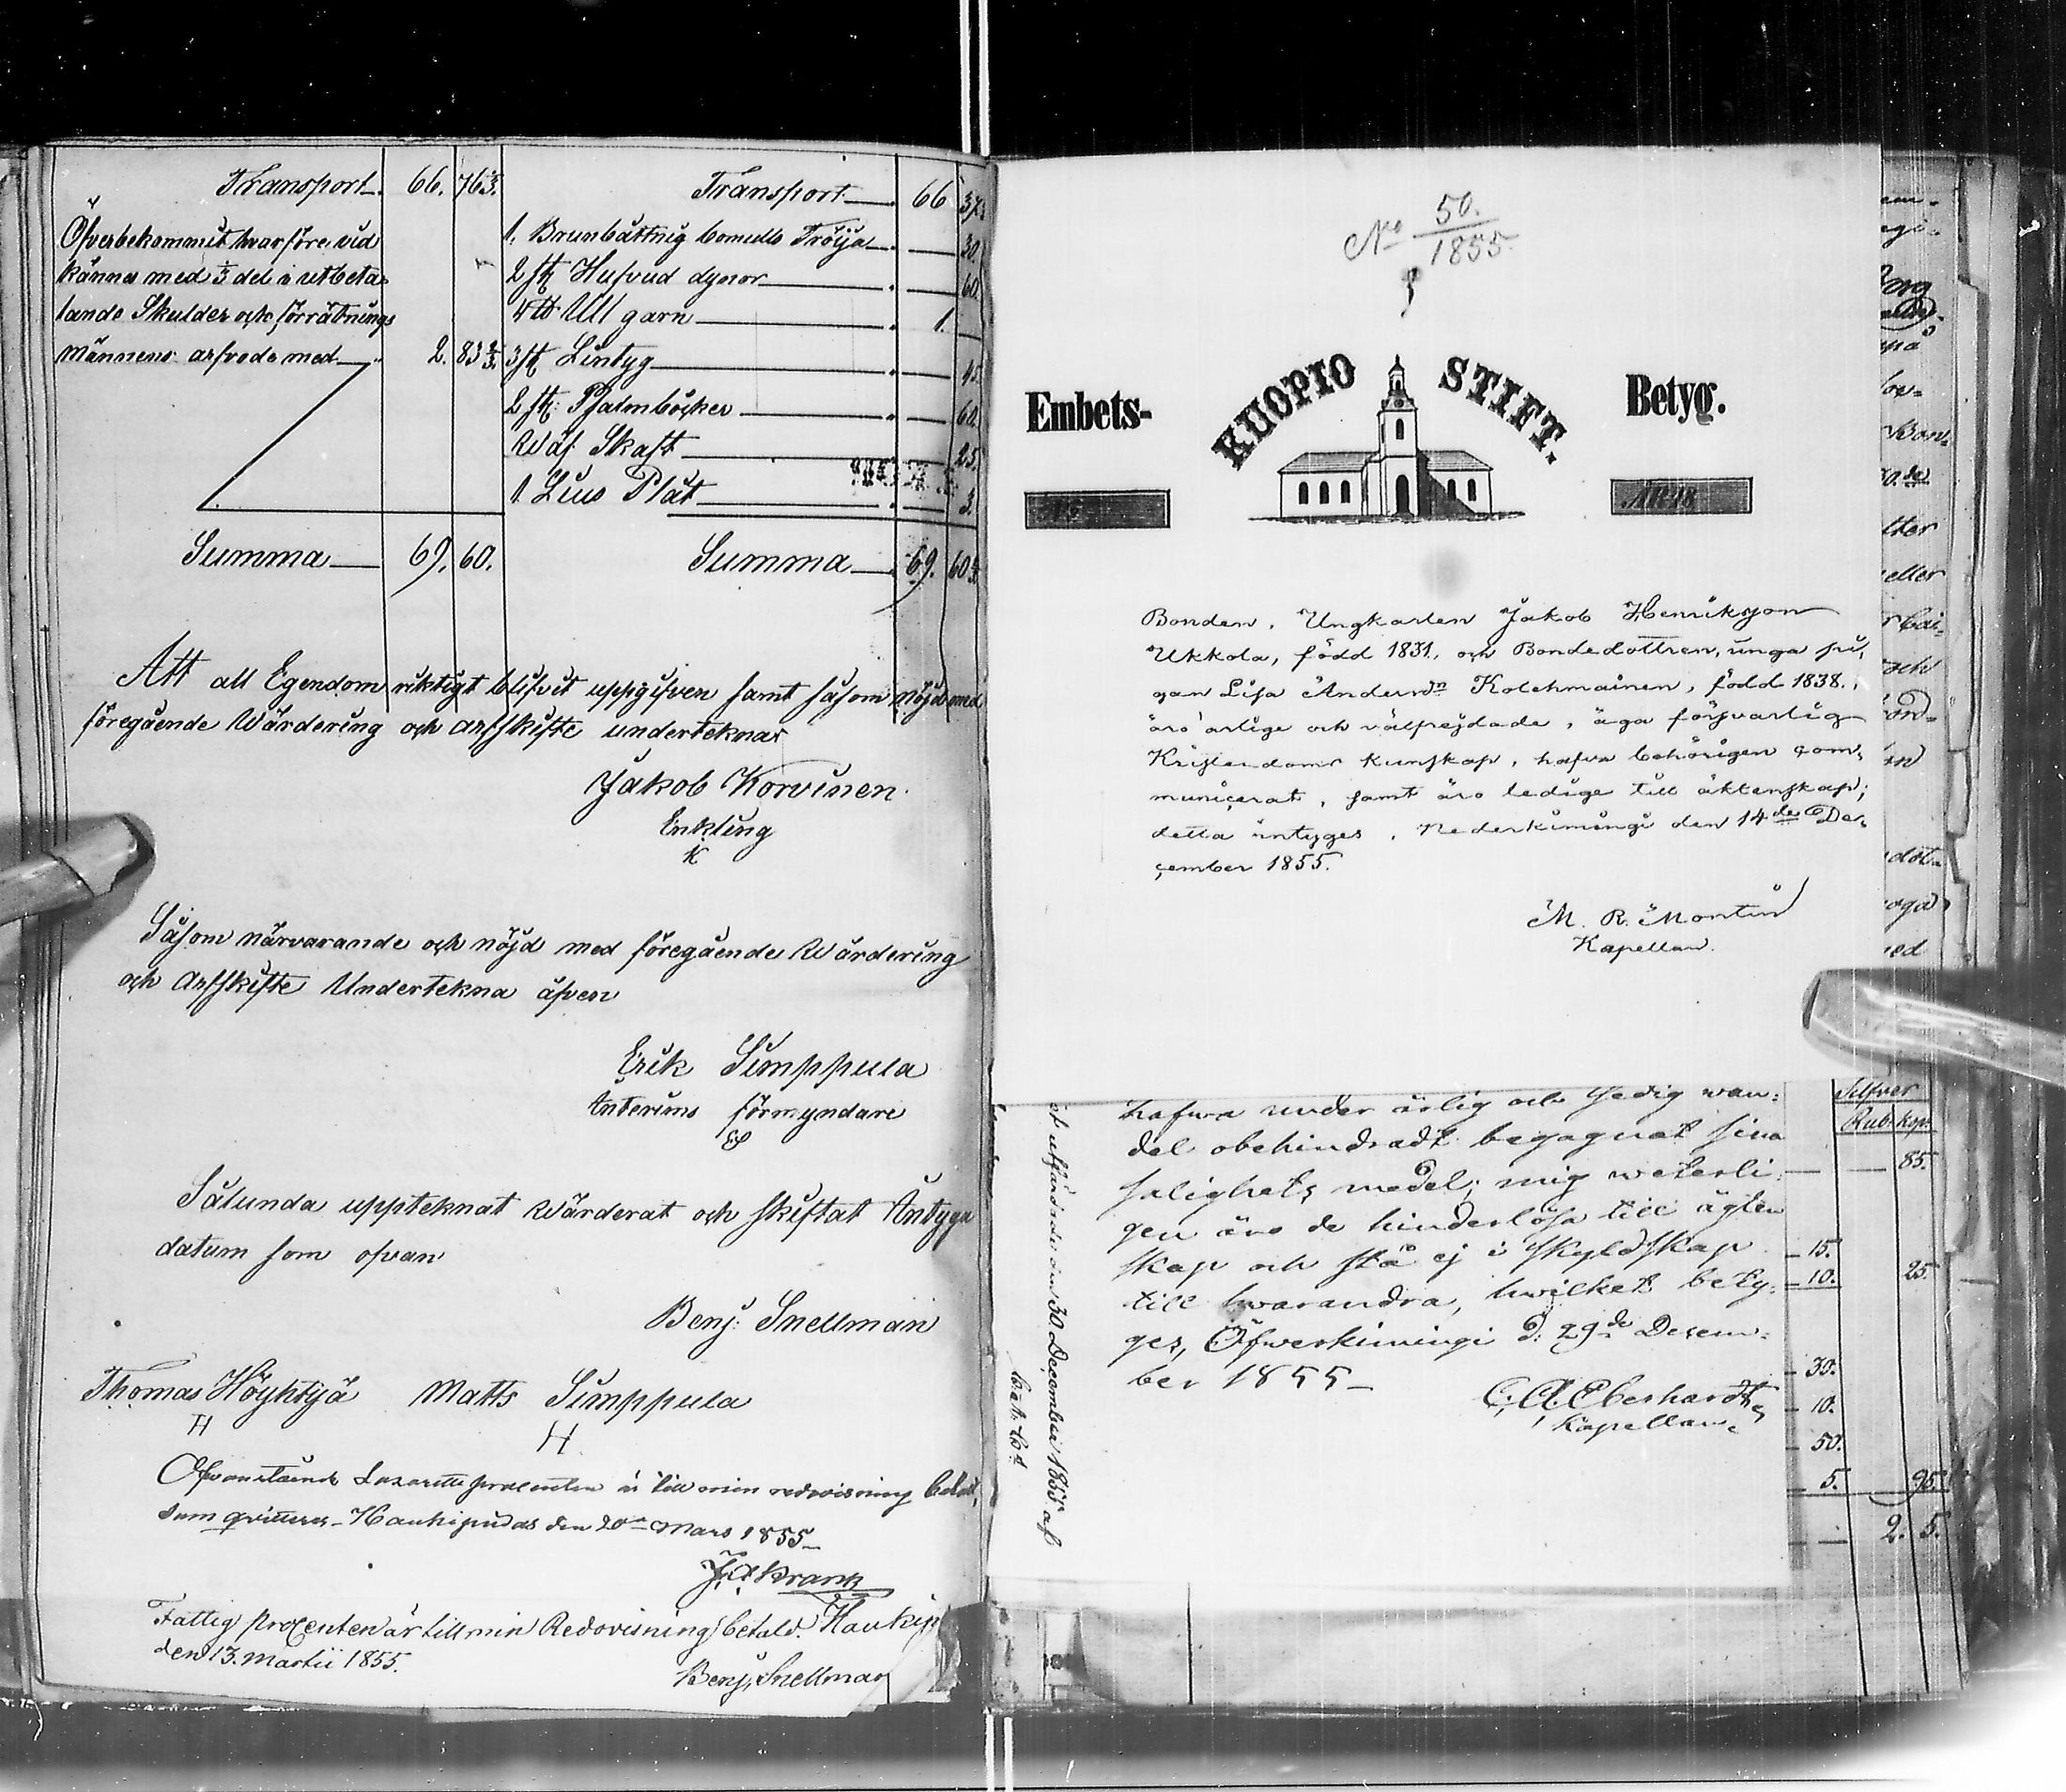 Transport 66. 76 1/3.
Öfverbekommit hvarföre vid
känner med 1/3 del i utbeta-
lande Skulder och förrätnings
männens arfvode med 2. 83 2/3.
Summa 69. 60.
Transport 66 37
1. Brunbåttnig bomulls Tröija 30.
2 st Hufvud dynor 60.
4 ℔ Ull garn 1.
3 st Lintyg 45.
2 st. Psalmböcker 60.
Wäf Skaft 25.
1 Lius Plåt 3.
Summa 69. 60
Att all Egendom riktigt blifvit uppgifven samt såsom nöjd med
föregående Wärdering och arfskifte underteknar
Jakob Korvinen.
Enkling
K
Såsom närvarande och nöjd med föregående Wärdering
och Arfskifte Undertekna äfven
Erik Simppula
Interims förmyndare
ES
Sålunda uppteknat Wärderat och skiftat Intyga
datum som ofvan
Benj: Snellman
Thomas Höyhtyä Matts Simppula
H H
Ofvanstående Lazaretts procenten är till min redovisning betald,
som qvitteras Haukipudas den 20 Mars 1855
J. A. Krank
Fattig procenten är till min Redovisning betald. Haukip
den 13. Martii 1855.
Benj. Snellman
No 50.
1855.
Embets- KUOPIO STIFT. Betyg.
Bonden, Ungkarlen Jakob Henriksson
Ukkola, född 1831, och Bondedottren, unga pi-
gan Lisa Andersdn Kolehmainen, född 1838.,
äro ärlige och välfrejdade, äga försvarlig
Kristendoms kunskap, hafva behörigen com-
municerat, samt äro ledige till äktenskap;
detta intyges. Nederkimingi den 14de De-
cember 1855.
M. R. Montin
Kapellan.
hafwa under ärlig och sedig wan-
del obehindradt begagnat sina
salighets medel; mig weterli-
gen äro de hinderlösa till ägten
skap och stå ej i skyldskap
till hwarandra, hwilket bety-
ges, Öfwerkimingi d. 29de Decem-
ber 1855
C. A. Eberhardt
Kapellan.
utfärdade den 30 December 1855 af
Silfver
Rub. kop.
85.
15.
10. 25.
30.
10.
50.
5. 95.
2. 5.